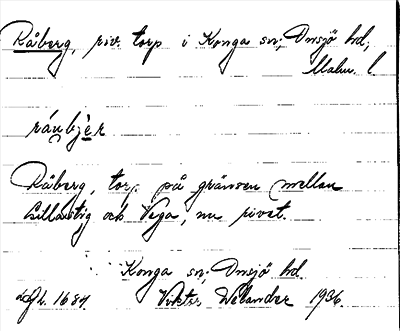 Råberg, riv. torp i Konga sn; Onsjö hd,
Malm. l.
råubjer
Råberg, torp på gränsen mellan
och Vega, nu rivet.
Konga sn; Onsjö hd.
1684. Viktor Welander 1936.